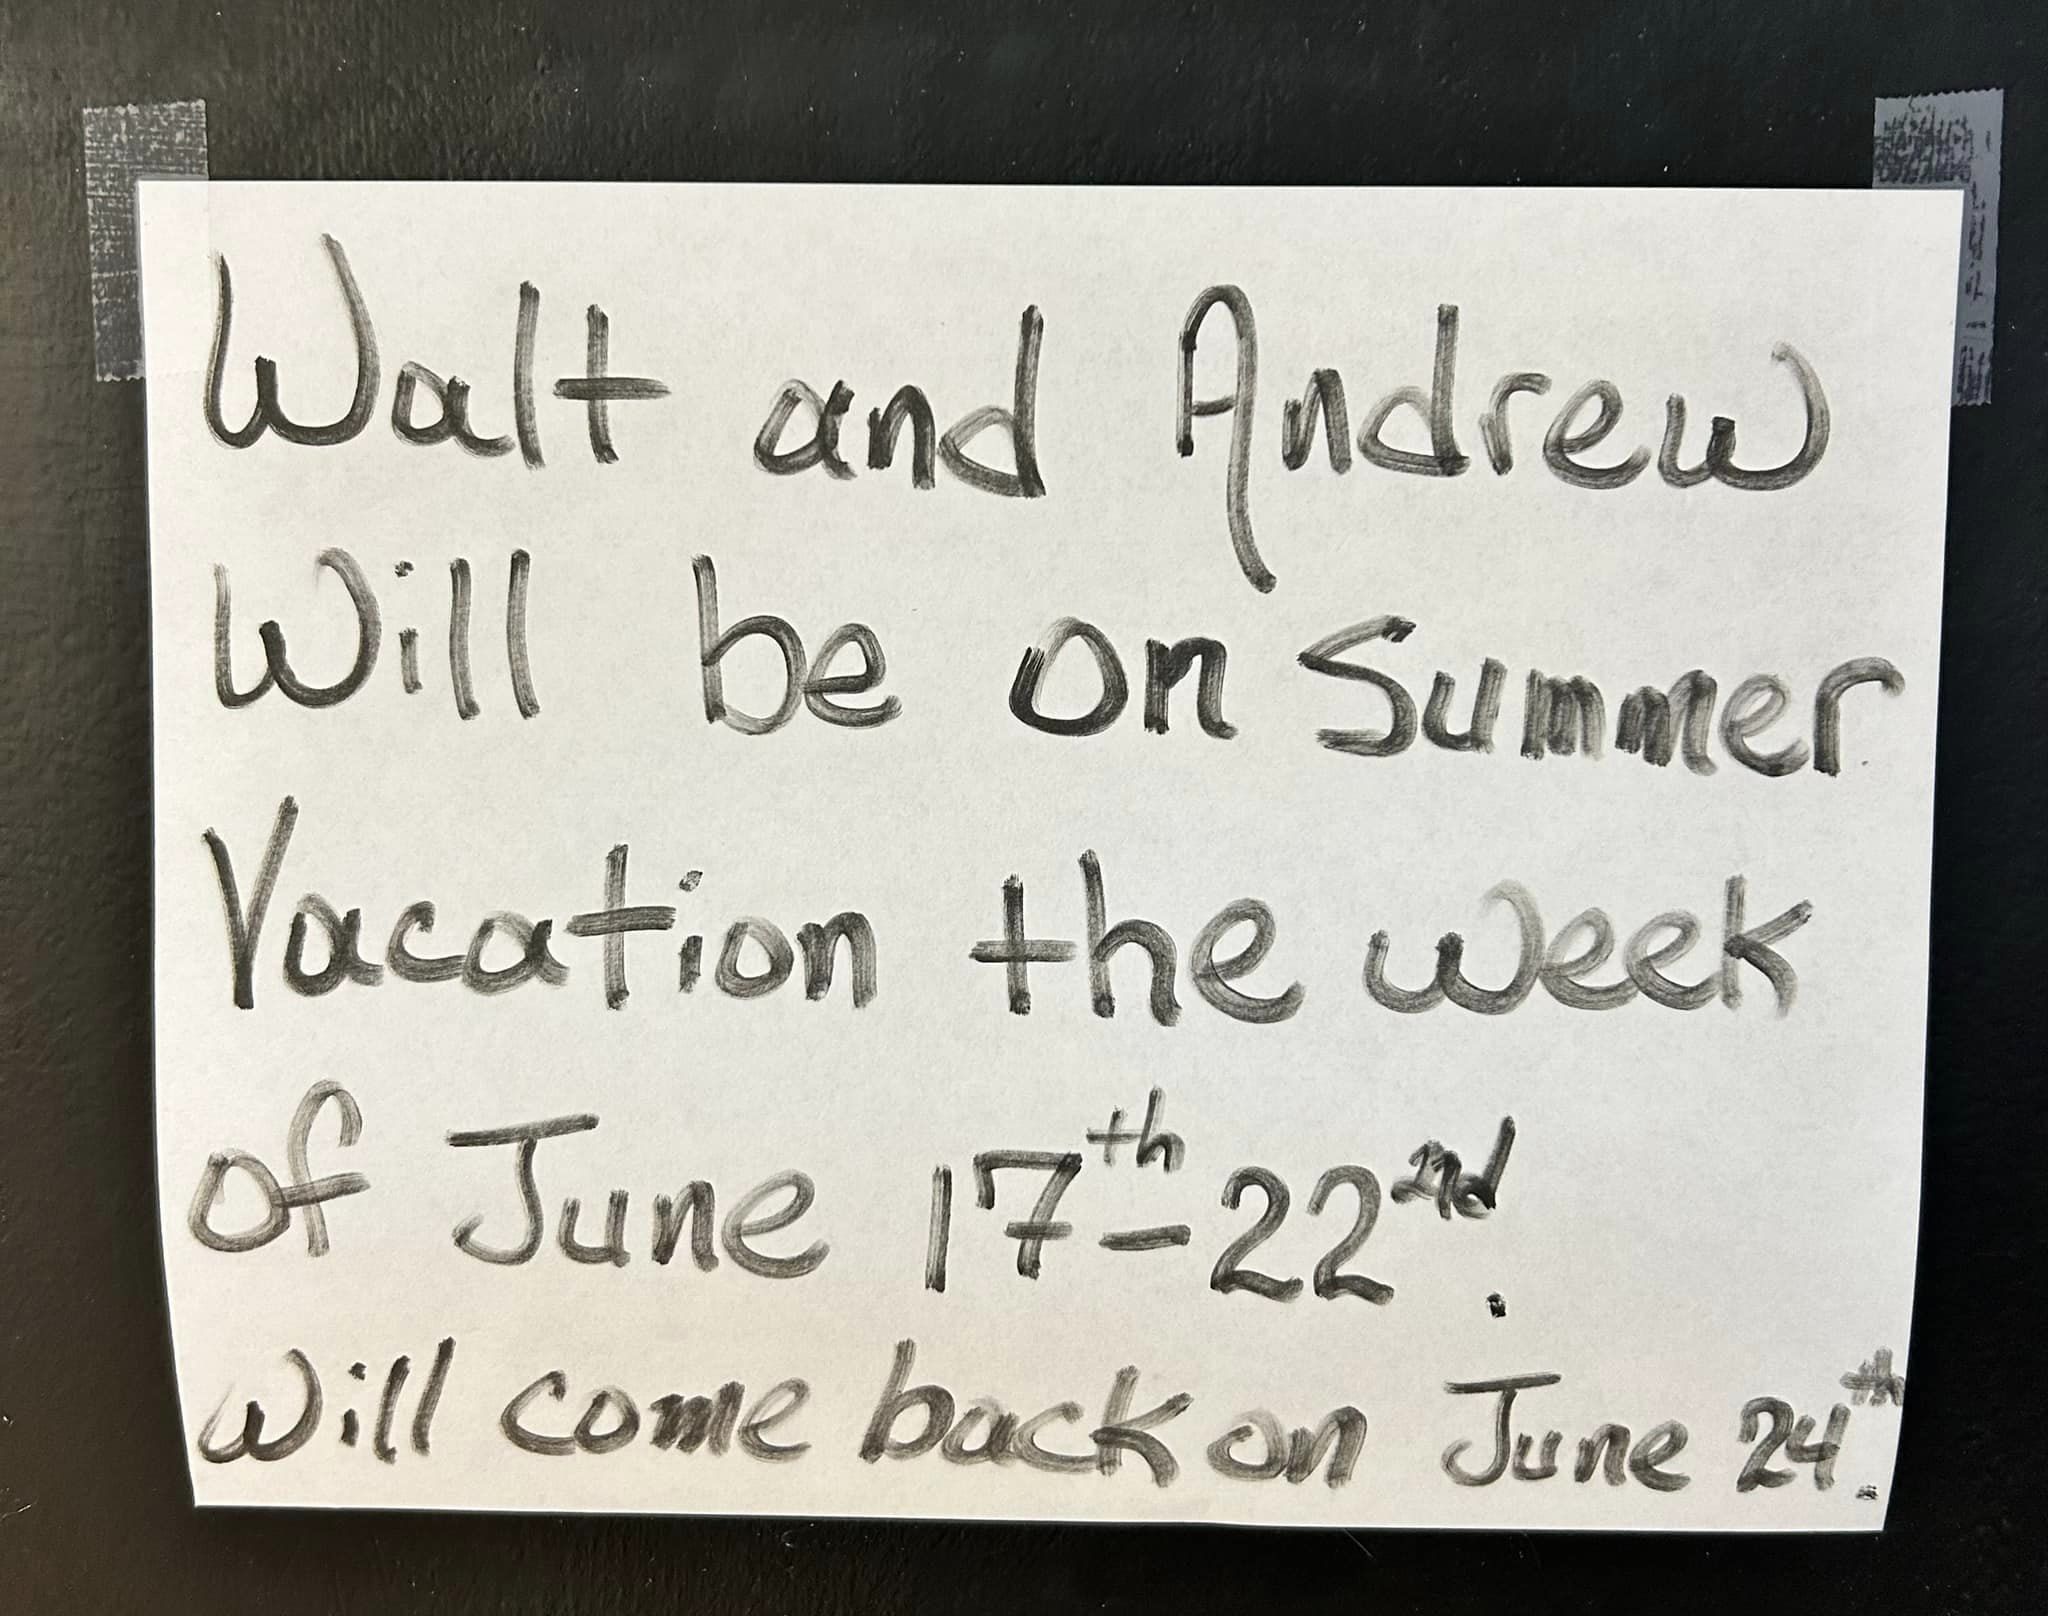 Walt and Andrew
Will be on Summer
Vacation the week
of June 17th-22nd.
Will come back on June 24th.